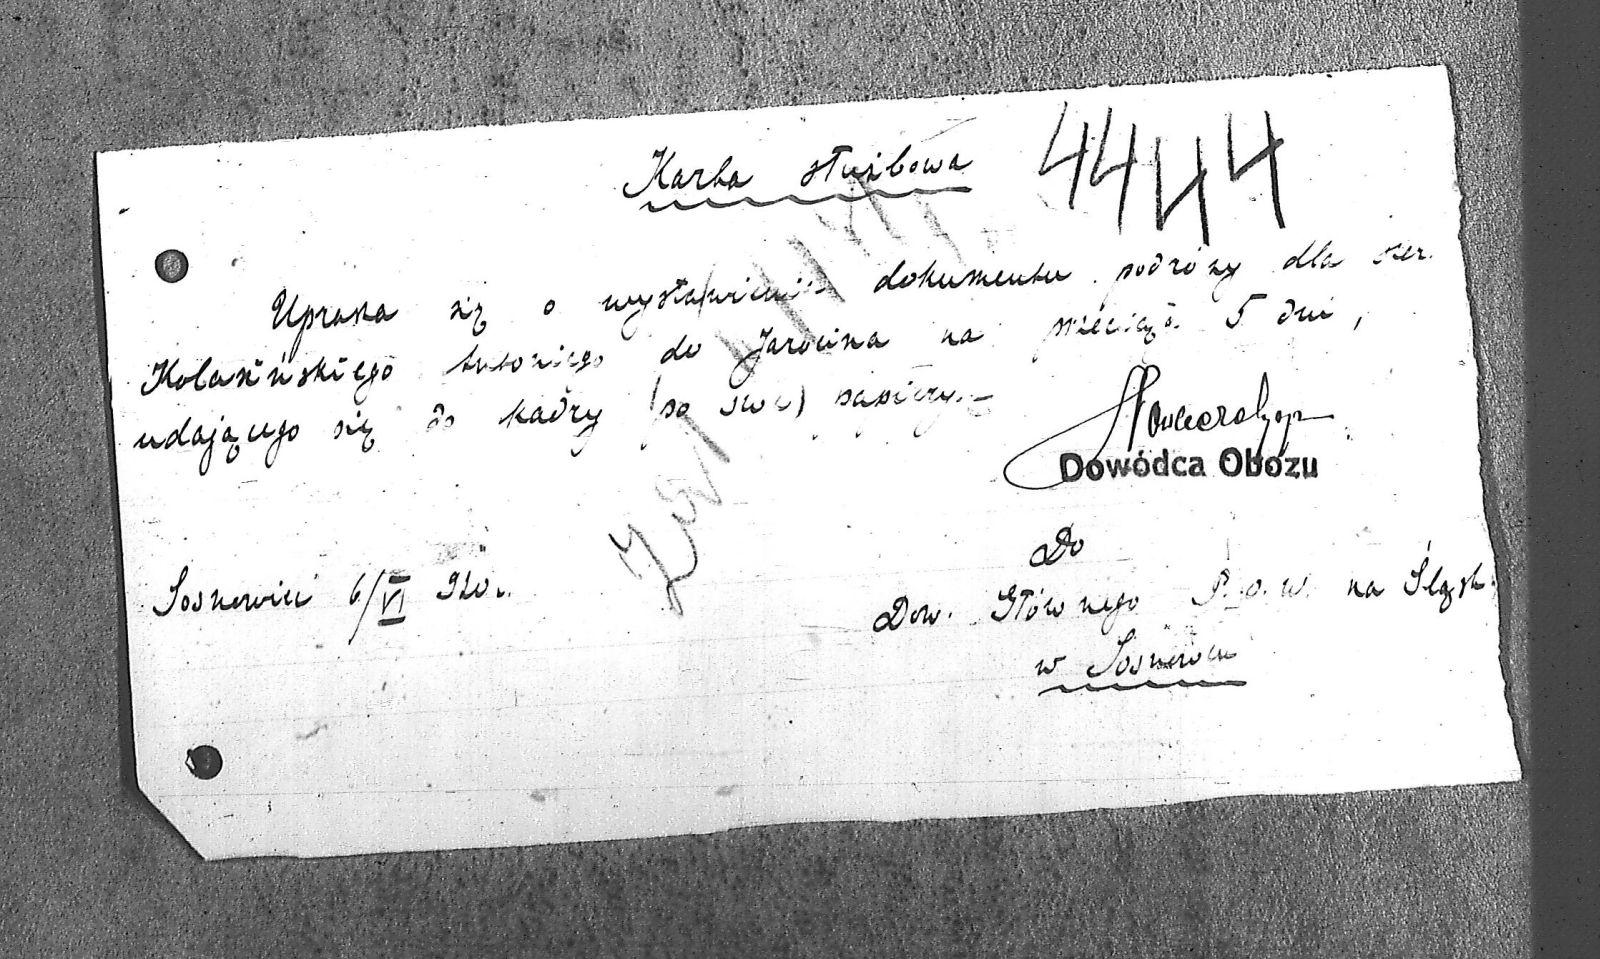 Karta służbowa 4444
Uprasza się o wystawienie dokumentu podróży dla szer.
Kolasińskiego Antoniego do Jarocina na przeciąg 5 dni,
udającego się do kadry (po swe) papiery.-
Dowódca Obozu
Sosnowiec 6/VI 920r.
Do
Dow. Głównego P.O.W. na Śląsk.
w Sosnowcu